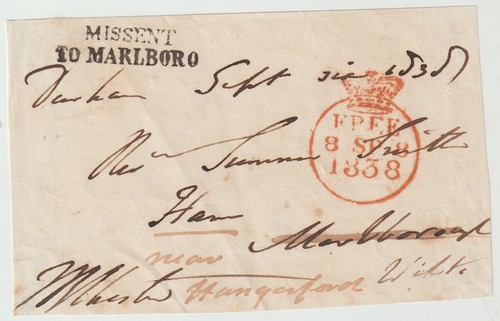 MISSENT
TO MARLBORO
Durham Sept six 1838
FREE
8 SP 8
1838
Revd Sumner Smith
Ham
Marlborough
near
Hungerford Wilts